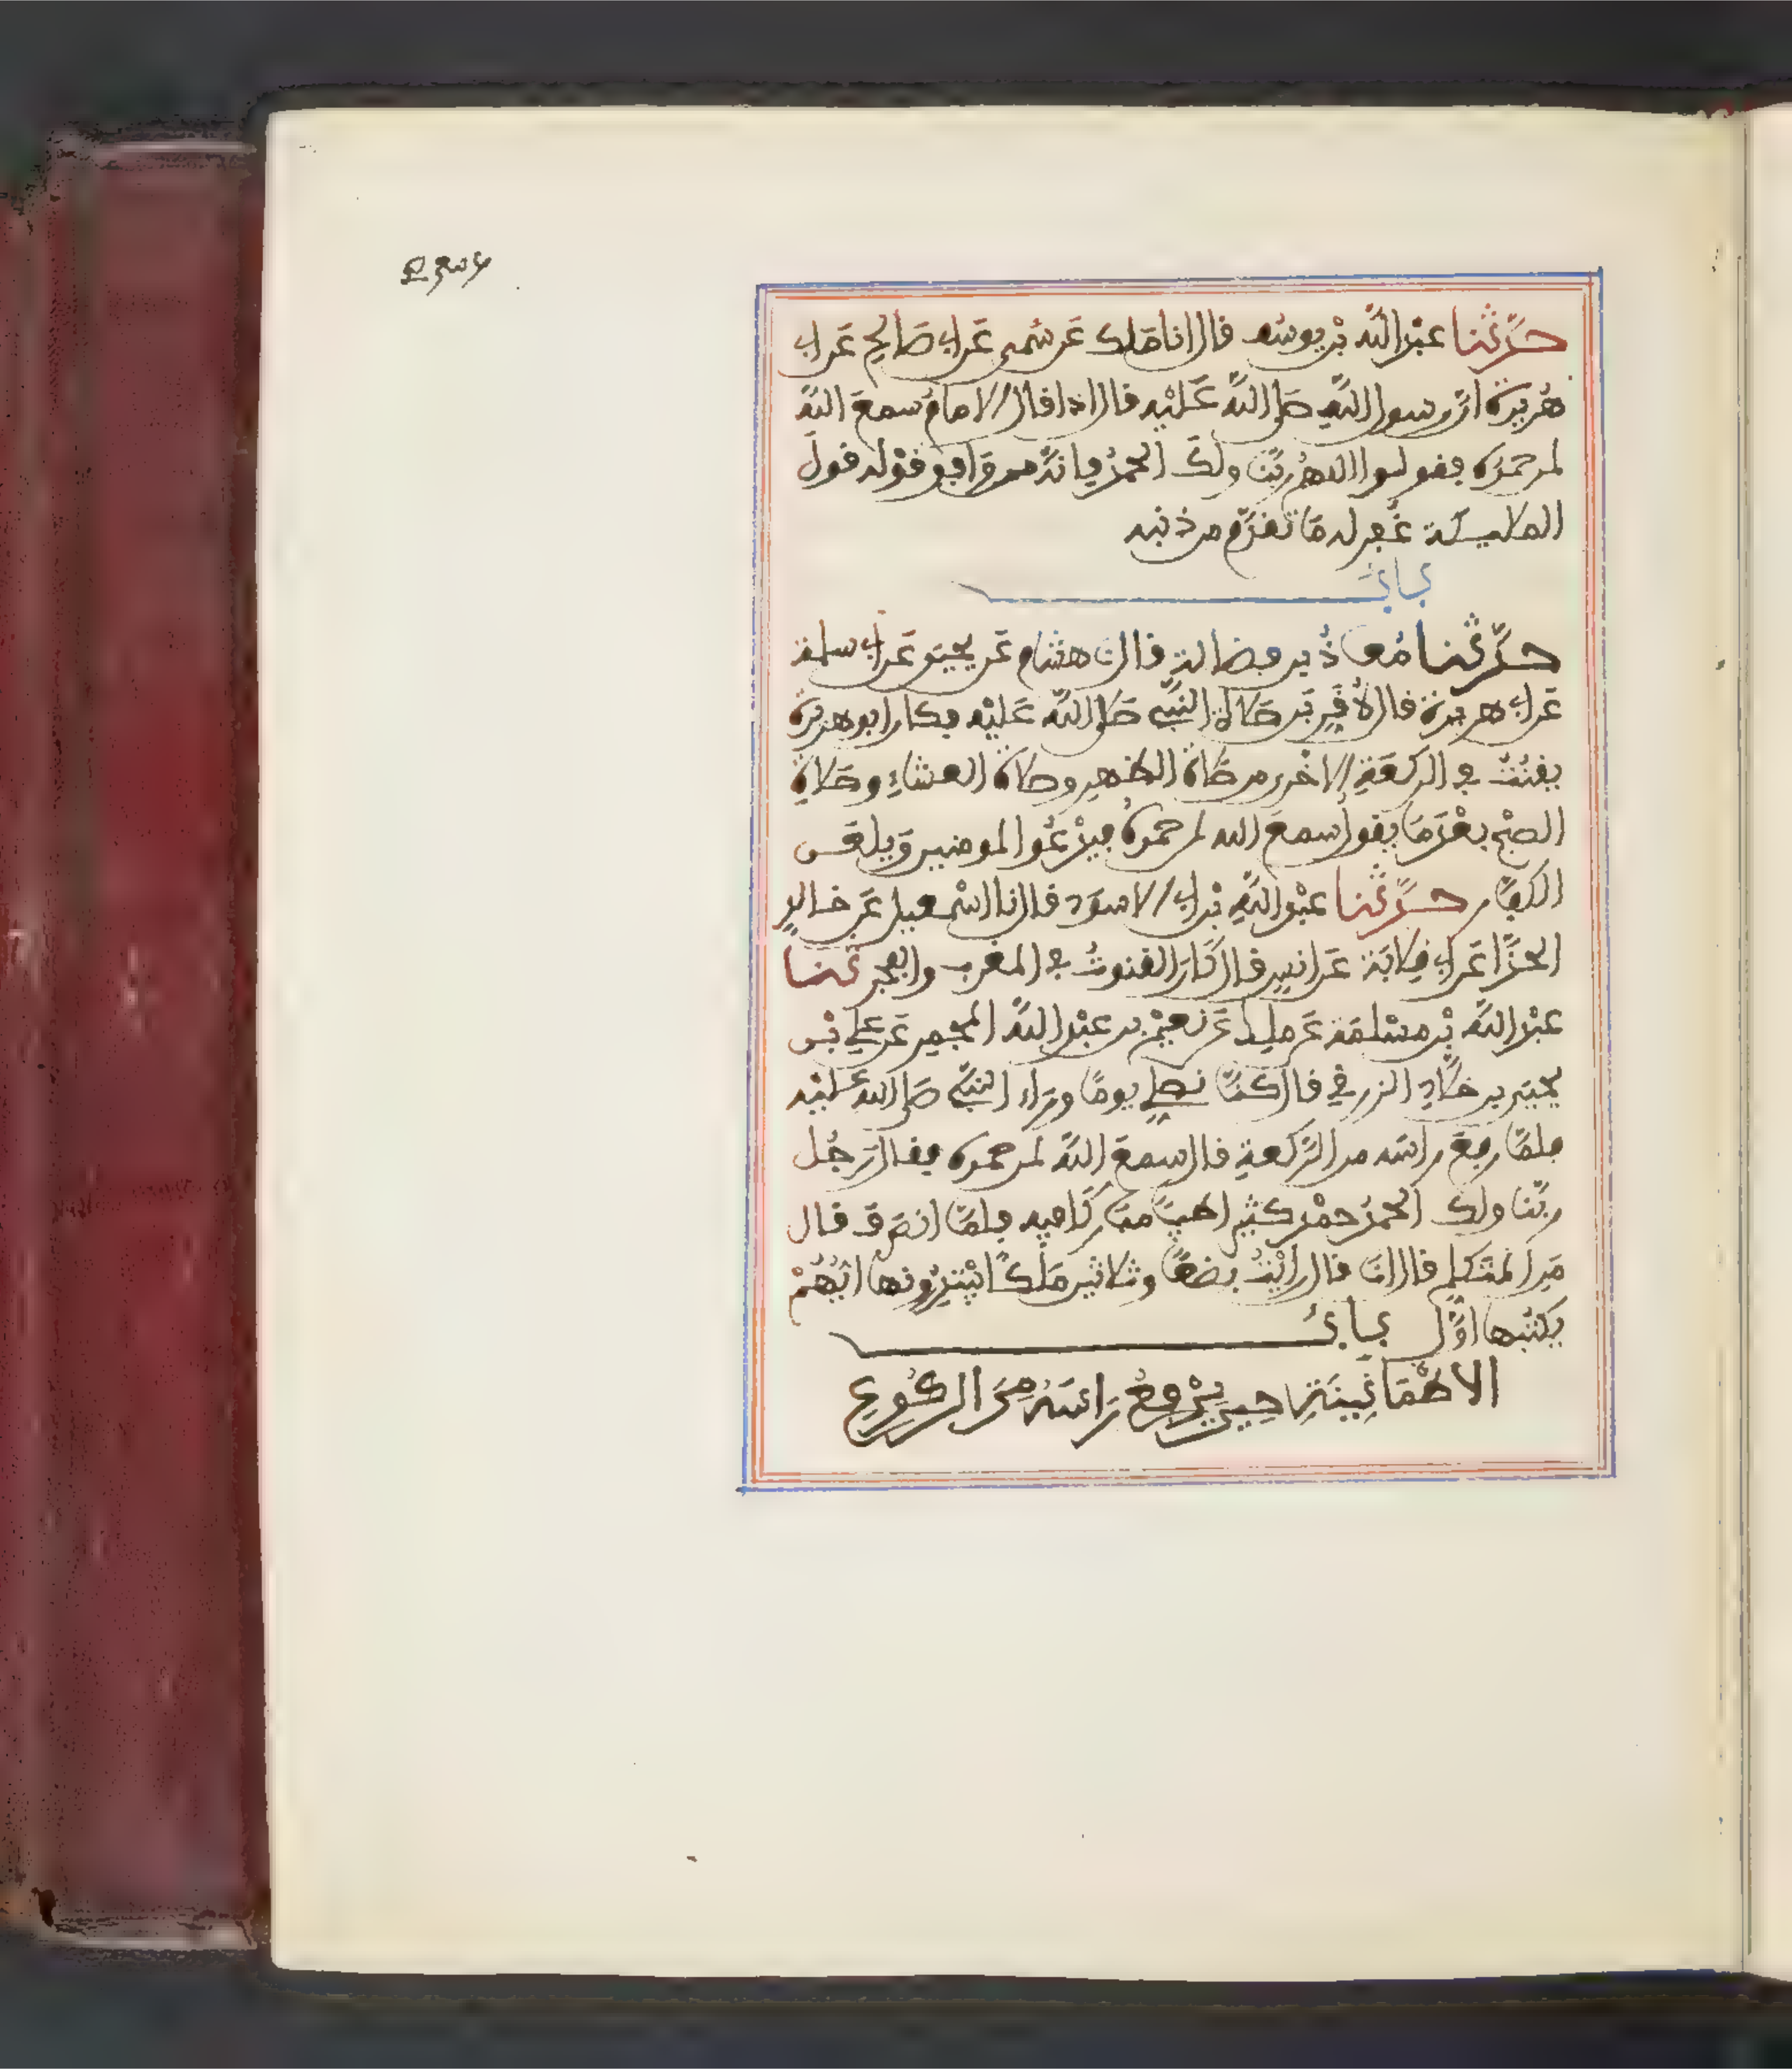 حدثنا عبد الله بن يوسف قال انا ملك عن سمي عن ابي صالح عن ابي
هريرة ان رسول الله صلى الله عليه قال اذا قال الامام سمع الله
لمن حمده فقولوا اللهم ربنا ولك الحمد فانه من وافق قوله قول
الملايكة غفر له ما تقدم من ذنبه
باب
حدثنا معاذ بن فضالة قال نا هشام عن يحيى عن ابي سلمة
عن ابي هريرة قال لأقربن صلاة النبي صلى الله عليه فكان ابو هريرة
يقنت في الركعة الاخرى من صلاة الظهر وصلاة العشاء وصلاة
الصبح بعد ما يقول سمع الله لمن حمده فيدعوا للمومنين ويلعن
الكفار حدثنا عبد الله بن ابي الاسود قال نا اسمعيل عن خالد
الحذا عن ابي قلابة عن انس قال كان القنوت في المغرب والفجر ثنا
عبد الله بن مسلمة عن ملك عن نعيم بن عبد الله المجمر عن علي بن
يحيى بن خلاد الزرقي قال كنا نصلي يوما وراء النبي صلى الله عليه
فلما رفع راسه من الركعة قال سمع الله لمن حمده فقال رجل
ربنا ولك الحمد حمدا كثيرا طيبا مباركا فيه فلما انصرف قال
من المتكلم قال انا قال رايت بضعا وثلاثين ملكا يبتدرونها ايهم
يكتبها اول باب
الاطمانينة حين يرفع راسه من الركوع